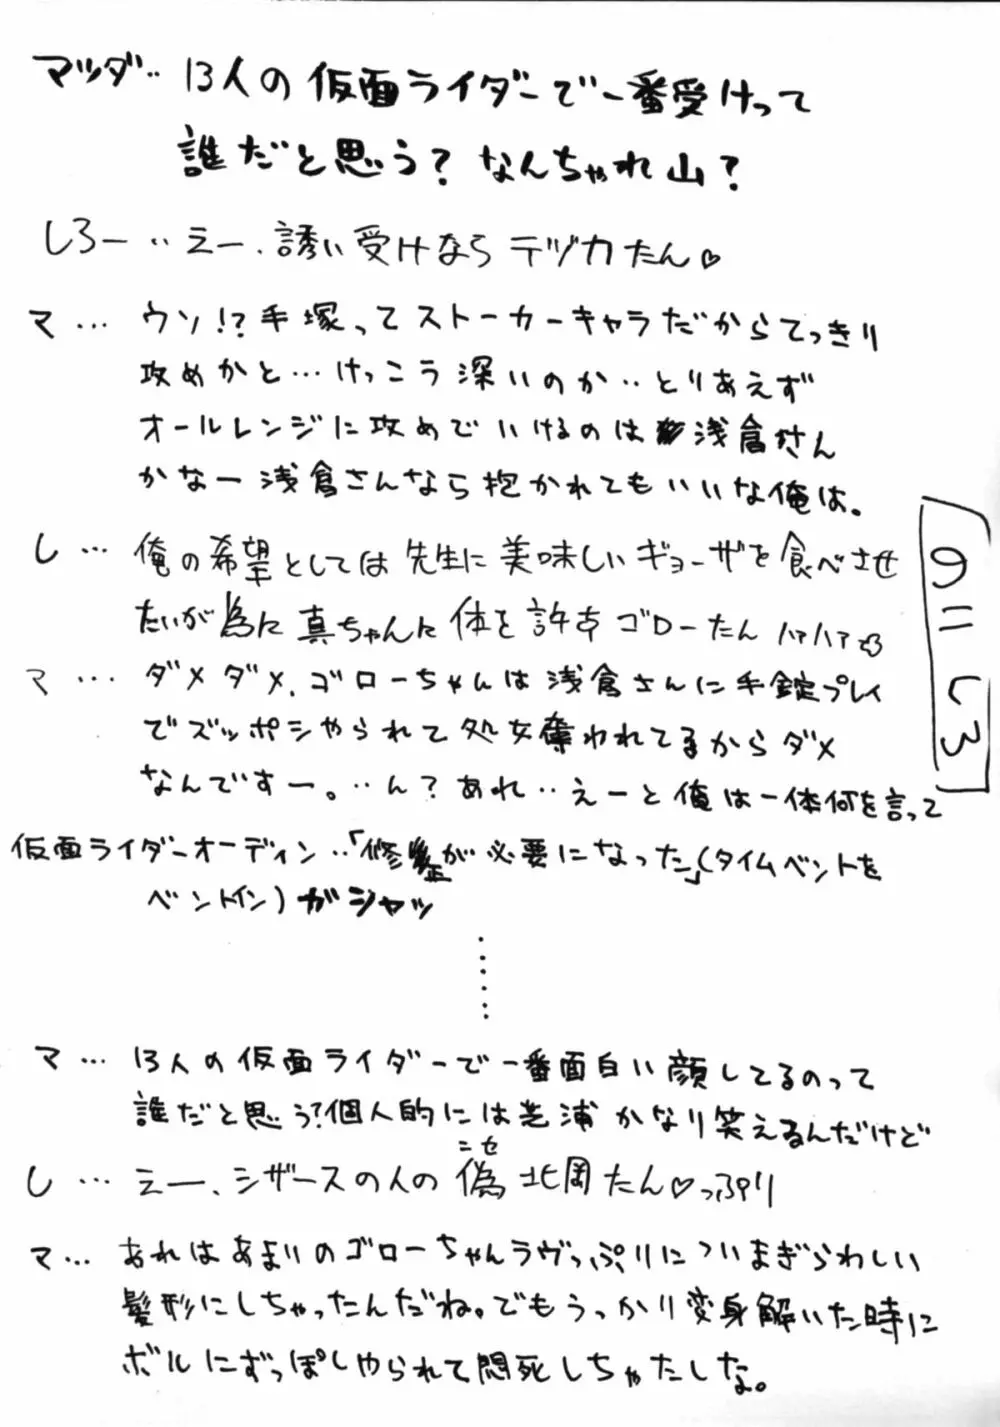 マツダ‥13人の仮面ライダーで一番受けって
誰だと思う?なんちゃれ山?
しろー‥えー、誘い受けならテヅカたん♡
マ…ウソ!?手塚ってストーカーキャラだからてっきり
攻めかと…けっこう深いのか‥とりあえず
オールレンジに攻めでいけるのは浅倉さん
かなー浅倉さんなら抱かれてもいいな俺は。
し…俺の希望としては先生に美味しいギョーザを食べさせ
たいが為に真ちゃんに体を許すゴローたんハァハァ
マ…ダメダメ、ゴローちゃんは浅倉さんに手錠プレイ
でズッポシやられて処女奪われてるからダメ
なんですー。‥ん?あれ‥えーと俺は一体何を言って
仮面ライダーオーディン‥「修正が必要になった」(タイムベントを
ベントイン)ガシャッ
・・・・・・
マ…13人の仮面ライダーで一番面白い顔してるのって
誰だと思う?個人的には芝浦かなり笑えるんだけど
し…えー、シザースの人の偽北岡たん♡っぷり
ニセ
マ…あれはあまりのゴローちゃんラヴっぷりについまぎらわしい
髪形にしちゃったんだね。でもうっかり変身解いた時に
ボルにずっぽしやられて悶死しちゃたしな。
のりしろ